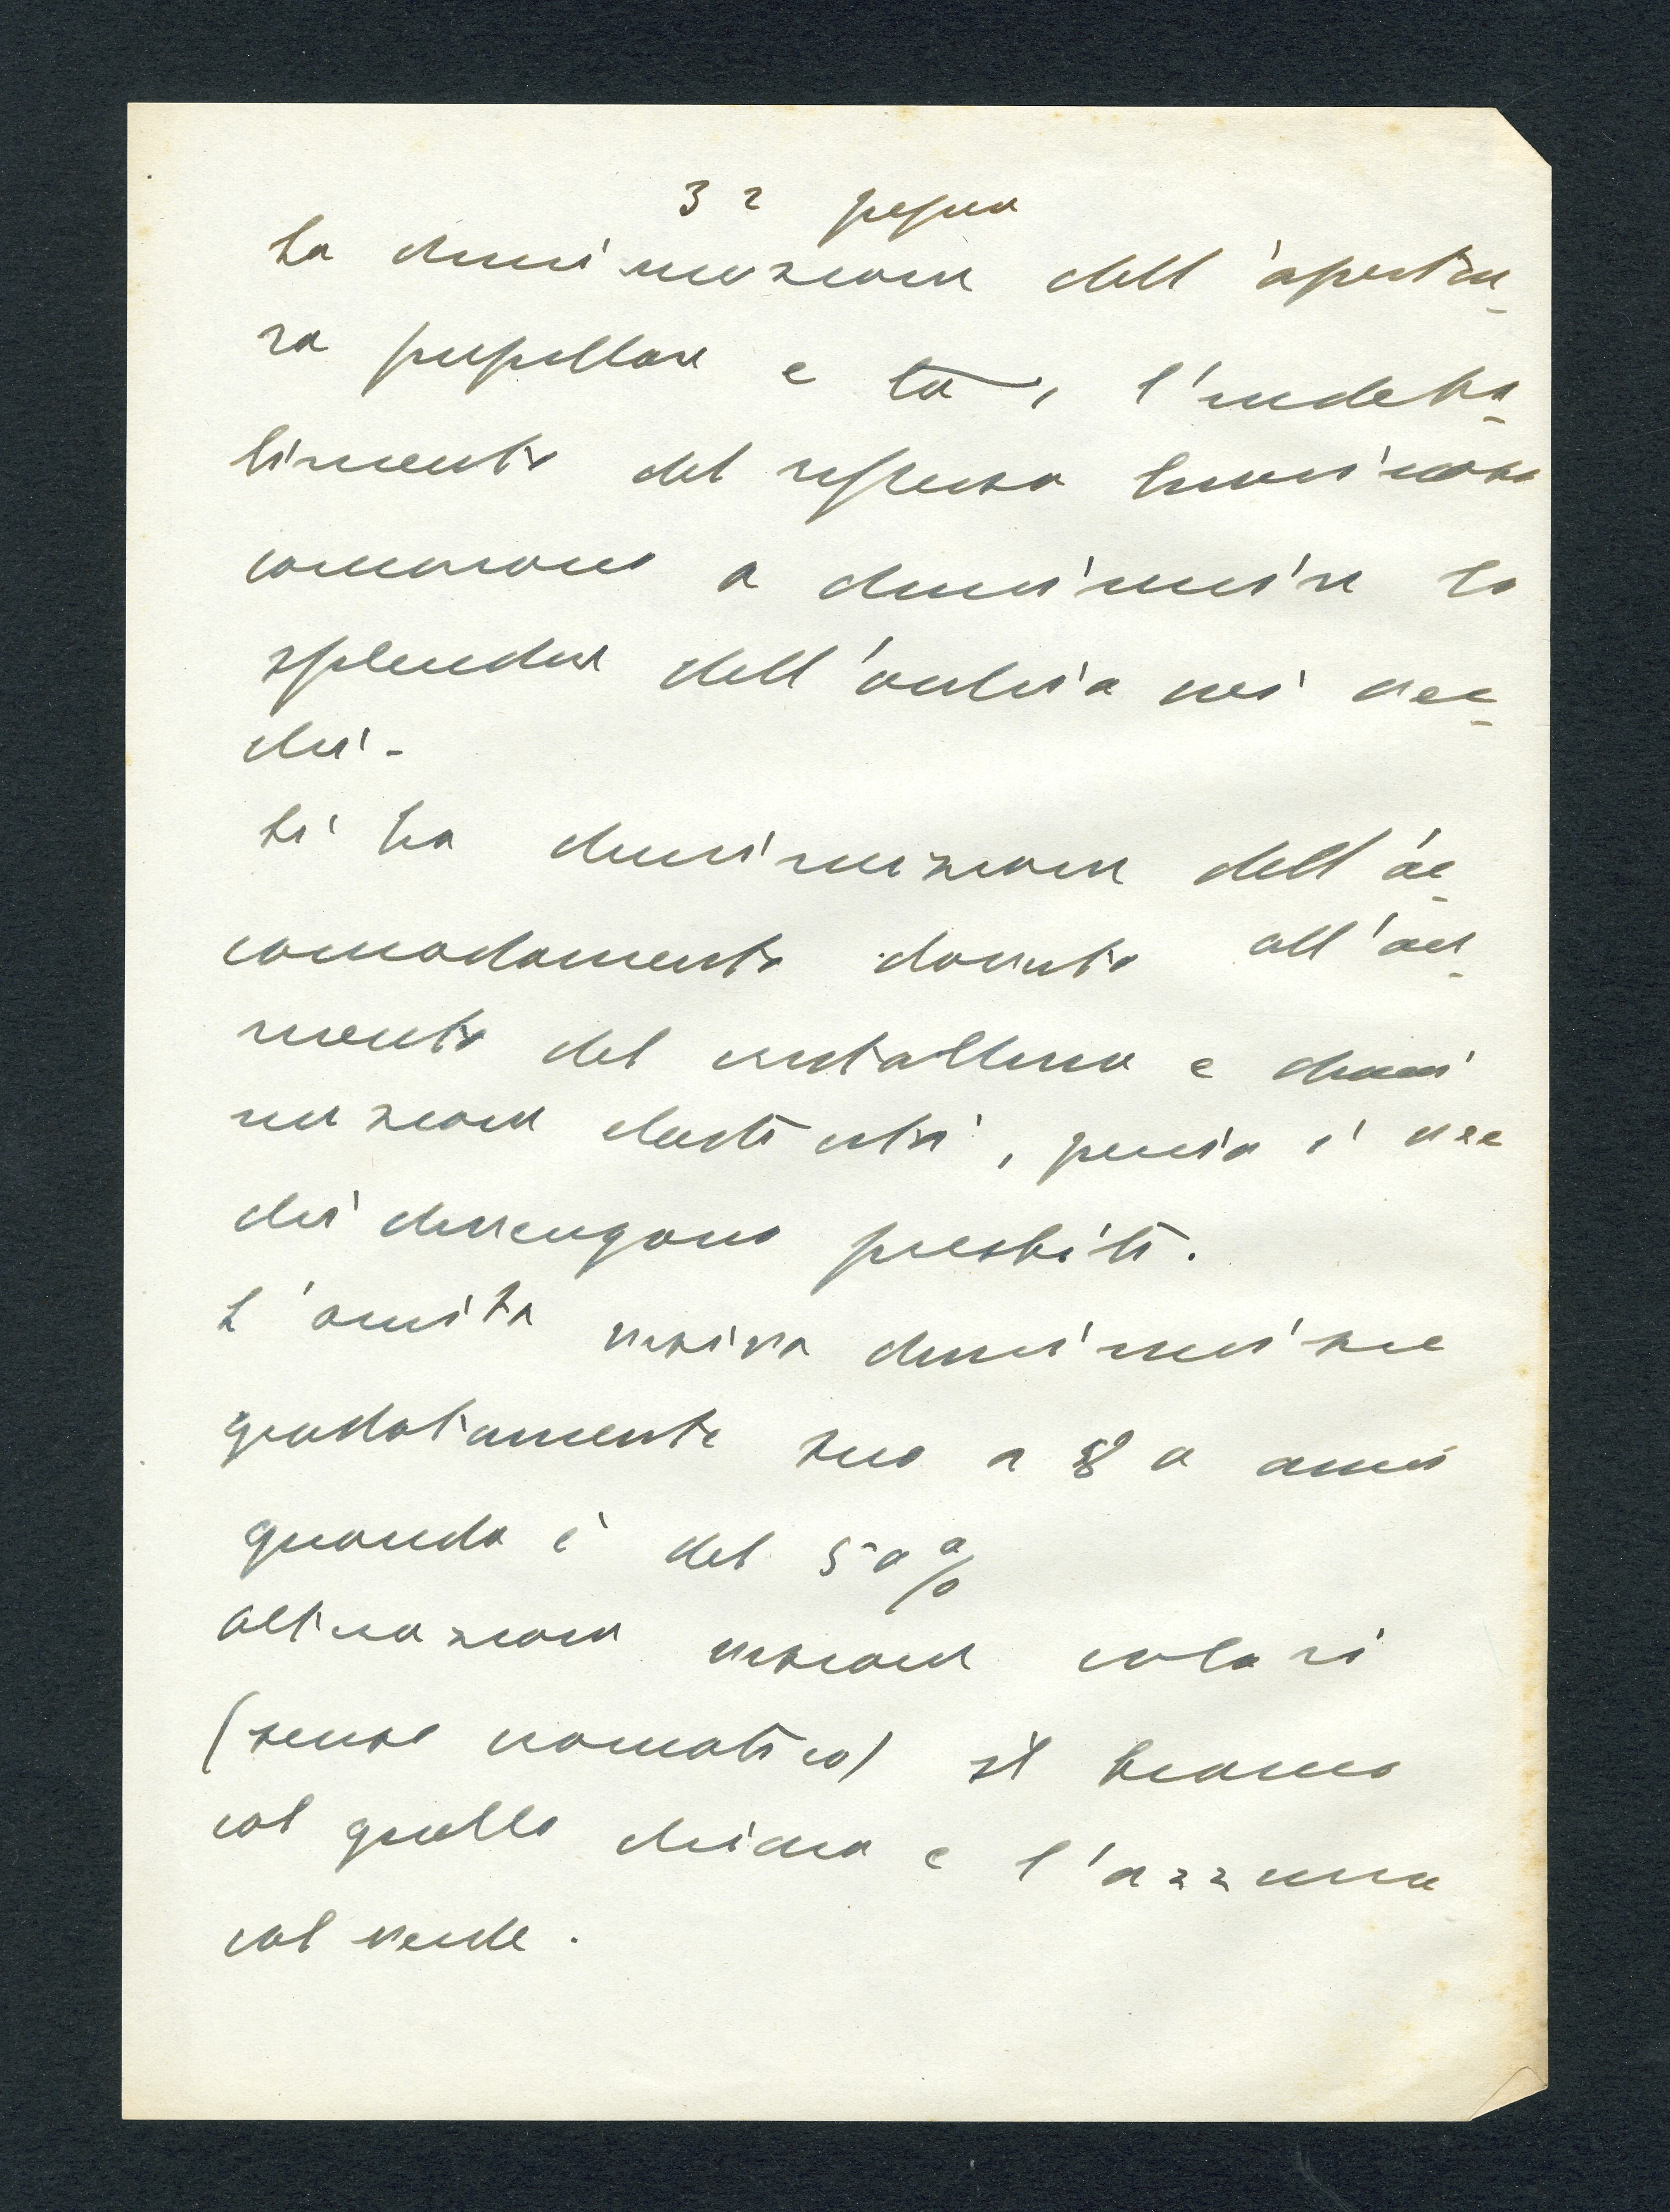 32 pagina
La diminuzione dell'apertu-
ra pupillare e la, l'indebo-
limento del riflesso luminoso
concorrono a diminuire lo
splendore dell'occhio nei vec-
chi.
Si ha diminuzione dell'ac-
comodamento dovuto all'au-
mento del cristallino e dimi
nuzione elasticità, perciò i vec
chi divengono presbiti.
L'acuità visiva diminuisce
gradatamente sino a 80 anni
quando è del 50%
alterazione visione colori
(senso cromatico) il bianco
col giallo chiaro e l'azzurro
col verde.